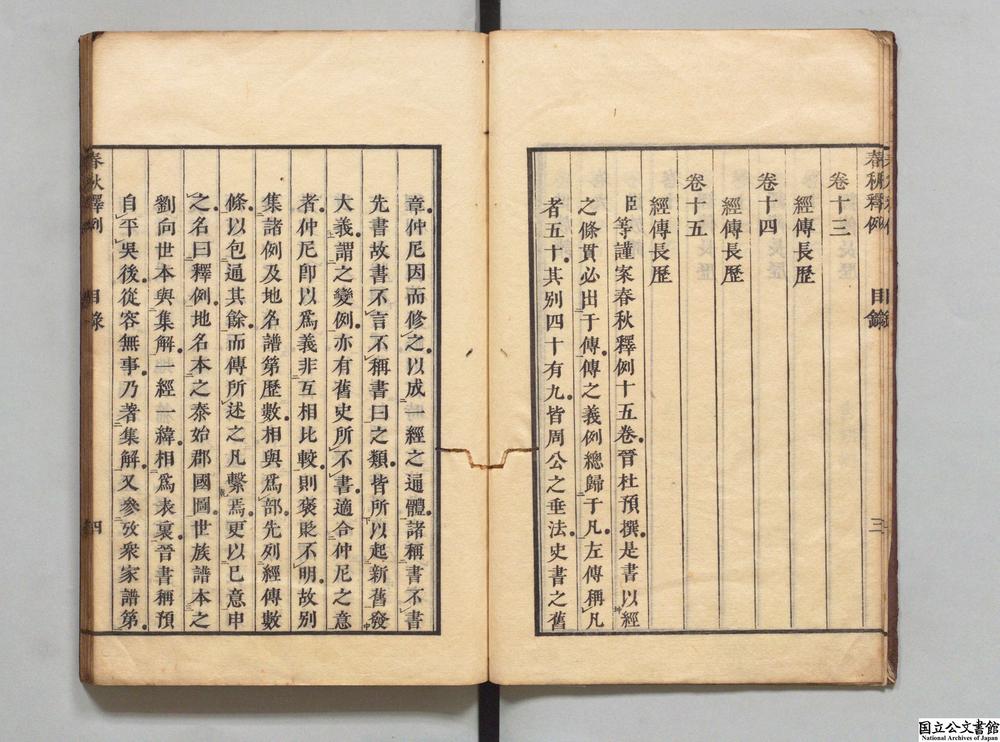 春秋釋例 目錄 三
卷十三
經傳長歷
卷十四
經傳長歷
卷十五
經傳長歷
臣等謹案春秋釋例十五卷晉杜預撰是書以經
之條貫必出于傳傳之義例總歸于凡左傳稱凡
者五十其別四十有九皆周公之垂法史書之舊
章仲尼因而修之以成一經之通體諸稱書不書
先書故書不言不稱書曰之類皆所以起新舊發
大義謂之變例亦有舊史所不書適合仲尼之意
者仲尼卽以爲義非互相比較則褒貶不明故別
集諸例及地名譜第歷數相與爲部先列經傳數
條以包通其餘而傳所述之凡繫焉更以己意申
之名曰釋例地名本之泰始郡國圖世族譜本之
劉向世本與集解一經一緯相爲表裏晉書稱預
自平吳後從容無事乃著集解又參攷衆家譜第
春秋釋例 目錄 四
国立公文書館
National Archives of Japan